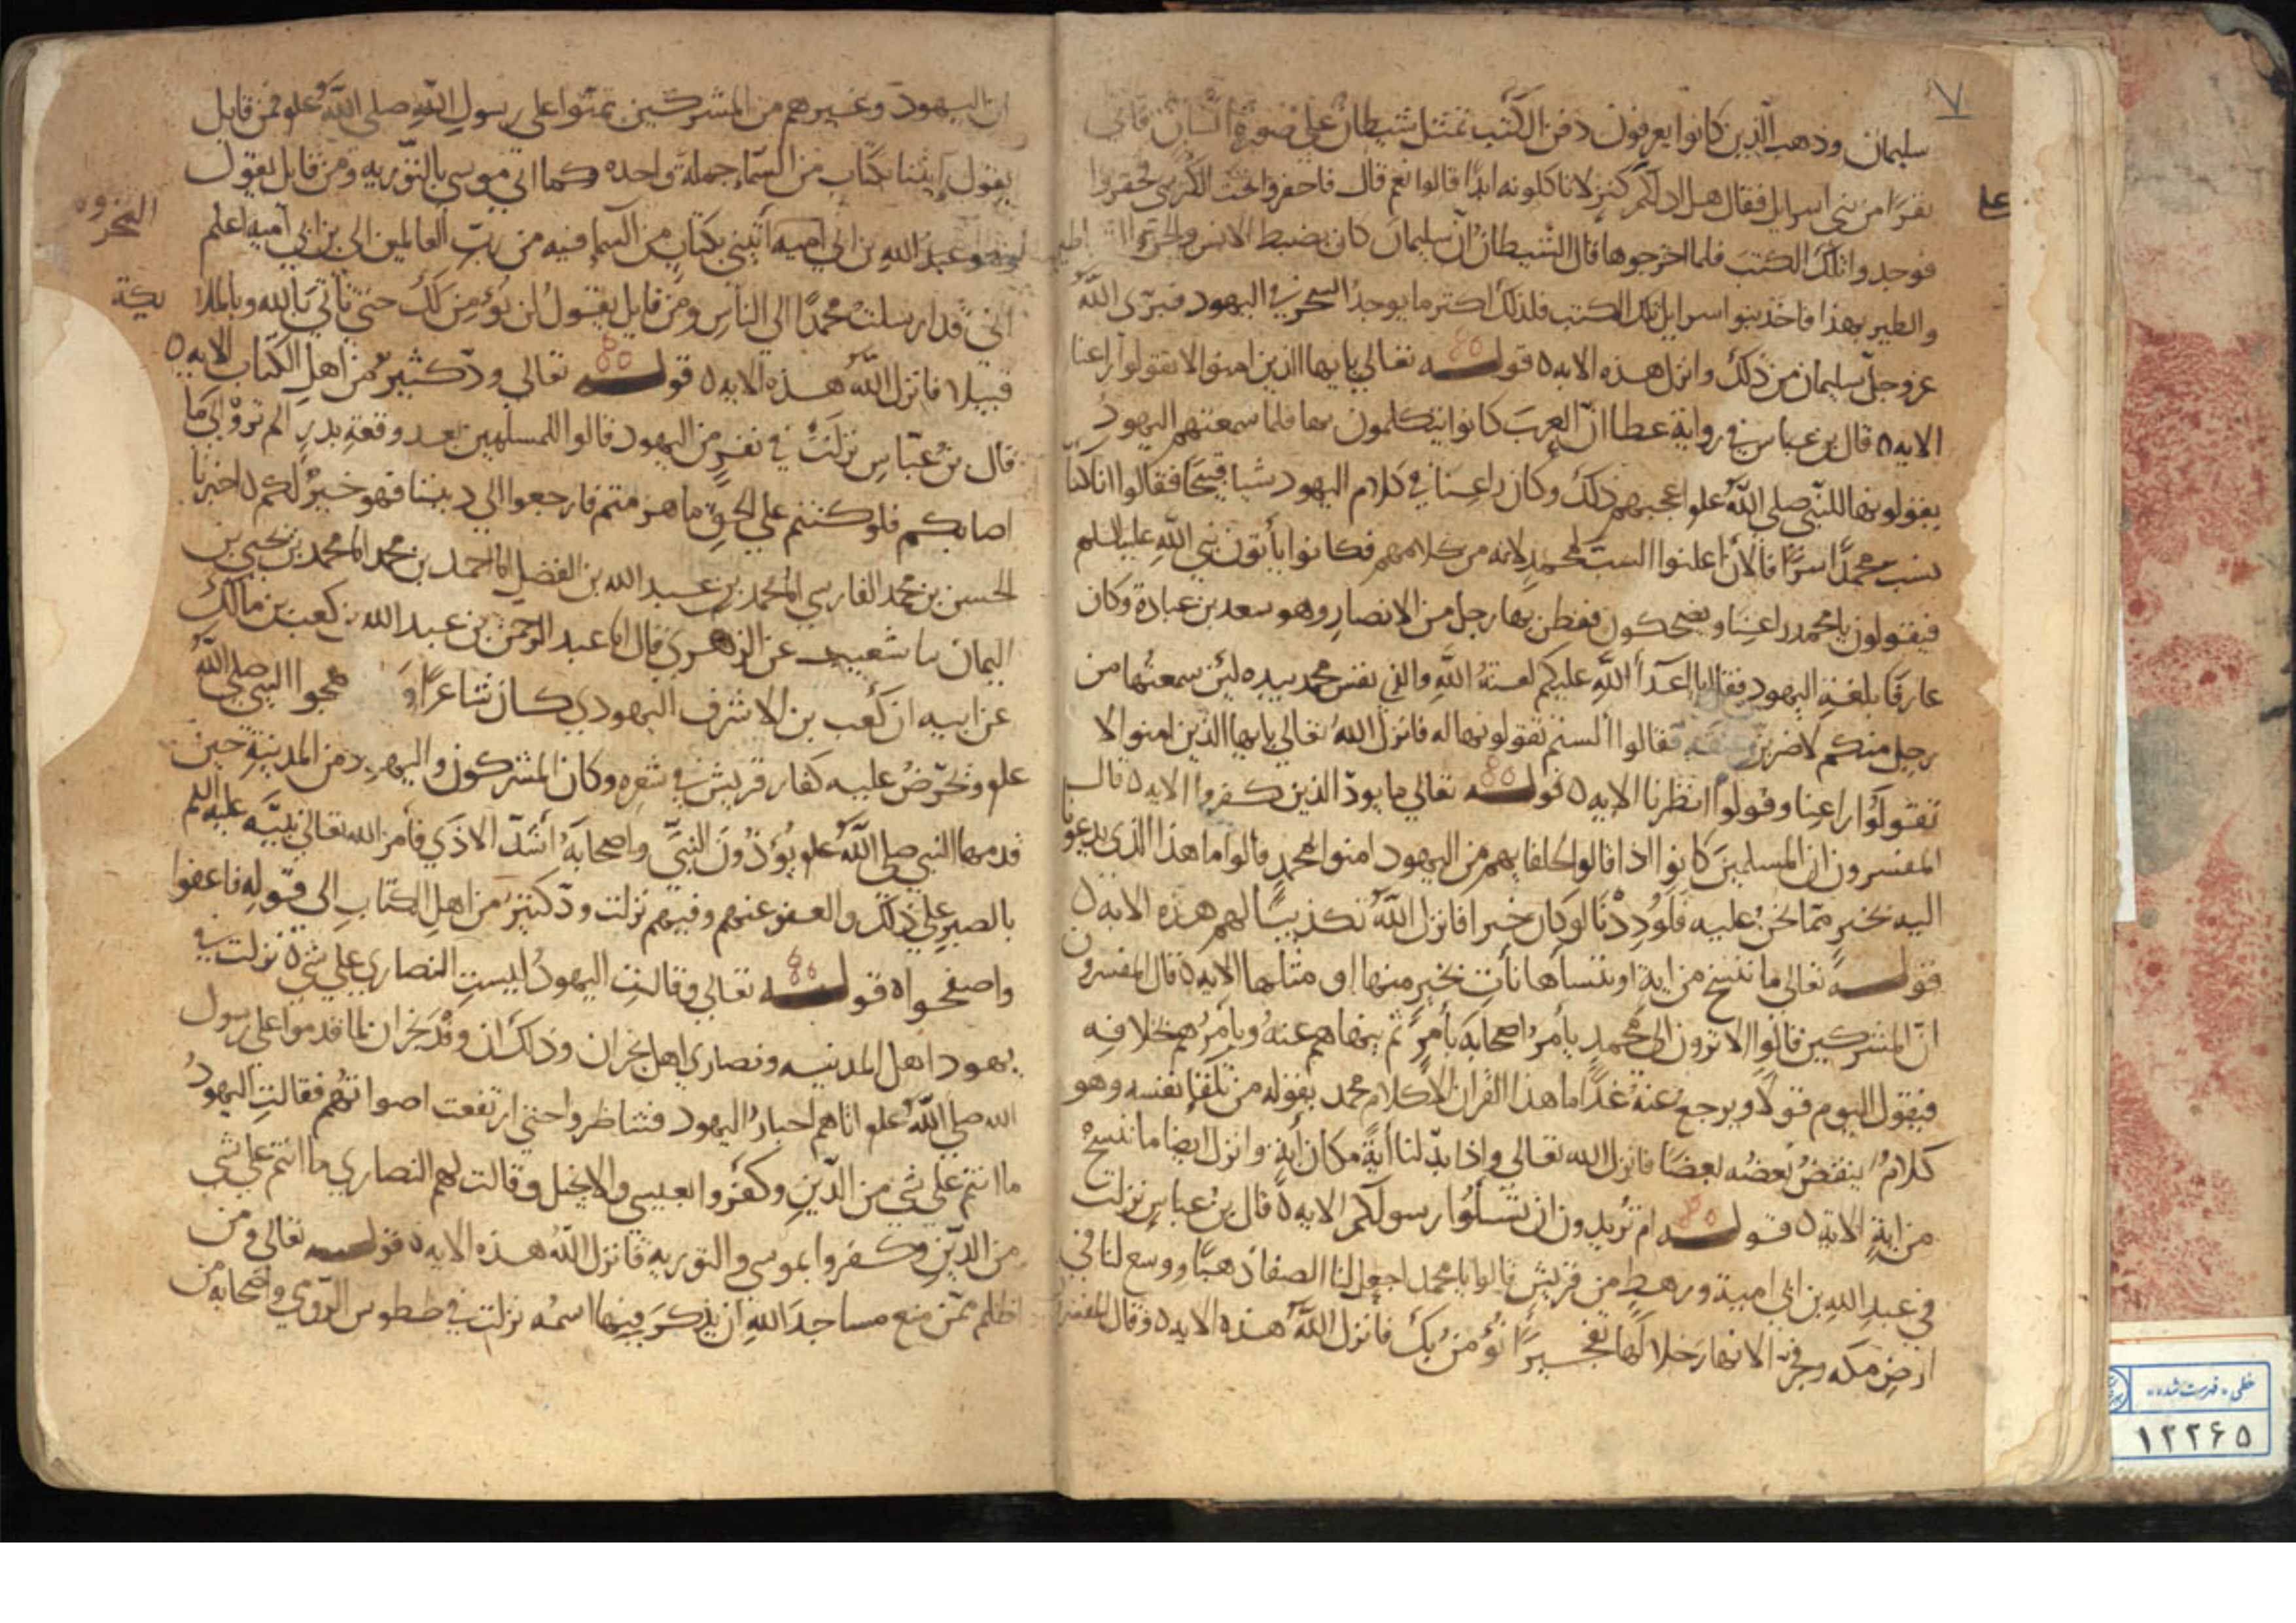 سليمان وذهب الذين كانوا يعرفون دفن الكتب تمثل شيطان على صورة انسان فاتى
نفرا من بنى اسرايل فقال هل ادلكم كنز لا تاكلونه ابدا قالوا نعم قال فاحفروا تحت الكرسى فحفروا
فوجدوا تلك الكتب فلما اخرجوها قال الشيطان ان سليمان كان يضبط الانس والجن
والطير بهذا فاخذ بنوا اسرايل تلك الكتب فلذلك اكثر ما يوجد السحر في اليهود فبرى الله
عز وجل سليمان من ذلك وانزل هذه الايه ه قوله تعالى يايها الذين امنوا لا تقولوا راعنا
الايه ه قال بن عباس في رواية عطا ان العرب كانوا يتكلمون بها فلما سمعتهم اليهود
يقولونها للنبى صلى الله علو اعجبهم ذلك وكان راعنا في كلام اليهود شيا قبيحا فقالوا انا كنا
نسب محمدا سرا فالان اعلنوا السب لمحمد لانه من كلامهم فكانوا يأتون نبى الله عليه السلم
فيقولون يا محمد راعنا ويضحكون ففطن بها رجل من الانصار وهو سعد بن عبادة وكان
عارفا بلغة اليهود فقال يا اعدآ الله عليكم لعنة الله والذي نفس محمد بيده لئن سمعتها من
رجل منكم لاضربن عنقه فقالوا ألستم تقولونها له فانزل الله تعالى يايها الذين امنوا لا
تقولوا راعنا وقولوا انظرنا الايه ه قوله تعالى ما يود الذين كفروا الايه ه قال
المفسرون ان المسلمين كانوا اذا قالوا لحلفايهم من اليهود امنوا بمحمد قالوا ما هذا الذى يدعونا
اليه بخير مما نحن عليه فلوددنا لو كان خيرا فانزل الله تكذيبا لهم هذه الايه ه
قوله تعالى ما ننسخ من اية او ننسأها نأت بخير منها او مثلها الايه ه قال المفسرون
ان المشركين قالوا الا ترون الى محمد يأمر اصحابه بأمر ثم ينهاهم عنه ويأمرهم بخلافه
فيقول اليوم قولا ويرجع عنه غدا ما هذا القران الا كلام محمد يقوله من تلقإ نفسه وهو
كلام ينقض بعضه بعضا فانزل الله تعالى واذا بدلنا أية مكان أية وانزل ايضا ما ننسخ
من اية الاية ه قوله ام تريدون ان تسئلوا رسولكم الايه ه قال بن عباس نزلت
في عبد الله بن ابي امية ورهط من قريش قالوا يا محمد اجعل لنا الصفا ذهبا ووسع لنا في
ارض مكه وفجر الانهار خلالها تفجيرا نؤمن بك فانزل الله هذه الايه ه وقال المفسرون
ان اليهود وغيرهم من المشركين تمنوا على رسول الله صلى الله علو فمن قايل
يقول إيتنا بكتاب من السماء جملة واحده كما اتى موسى بالتوريه ومن قايل يقول
وهو عبد الله بن ابي اميه أتينى بكتاب من السماء فيه من رب العالمين الى بن ابي اميه اعلم
المخزوه
انى قد ارسلت محمدا الى الناس ومن قايل يقول لن نؤمن لك حتى تأتى بالله وبالملا
يكة
قبيلا فانزل الله هذه الايه ه قوله تعالى ود كثير من اهل الكتاب الايه ه
قال بن عباس نزلت في نفر من اليهود قالوا للمسلمين بعد وقعة بدر الم تروا الى ما
اصابكم فلو كنتم على الحق ما هزمتم فارجعوا الى ديننا فهو خير لكم ه اخبرنا
الحسن بن محمد الفارسي انا محمد بن عبد الله بن الفضل انا احمد بن محمد انا محمد بن يحيى بن
اليمان ىا شعيب عن الزهري قال انا عبد الرحمن بن عبد الله بن كعب بن مالك
عن ابيه ان كعب بن الاشرف اليهودي كان شاعرا و هجوا النبى صلى الله
علو ويحرض عليه كفار قريش في شعره وكان المشركون واليهود من المدينة حين
قدمها النبي صلى الله علو يؤذون النبى واصحابه أشد الاذي فأمر الله تعالى نبيه عليه السلم
بالصبر على ذلك والعفو عنهم وفيهم نزلت ود كثير من اهل الكتاب الى قوله فاعفوا
واصفحوا ه قوله تعالى وقالت اليهود ليست النصارى على شى ه نزلت في
يهود اهل المدينه ونصاري اهل نجران وذلك ان وفد نجران لما قدموا على رسول
الله صلى الله علو اتاهم احبار اليهود فتناظروا حتى ارتفعت اصواتهم فقالت اليهود
ما انتم على شى من الدين وكفروا بعيسى والانجيل وقالت لهم النصاري ما انتم على شى
من الدين وكفروا بموسى والتوريه فانزل الله هذه الايه ه قوله تعالى ومن
اظلم ممن منع مساجد الله ان يذكر فيها اسمه نزلت في ططوس الرومى واصحابه من
خطی - فهرست شده
۱۲۲۶۵